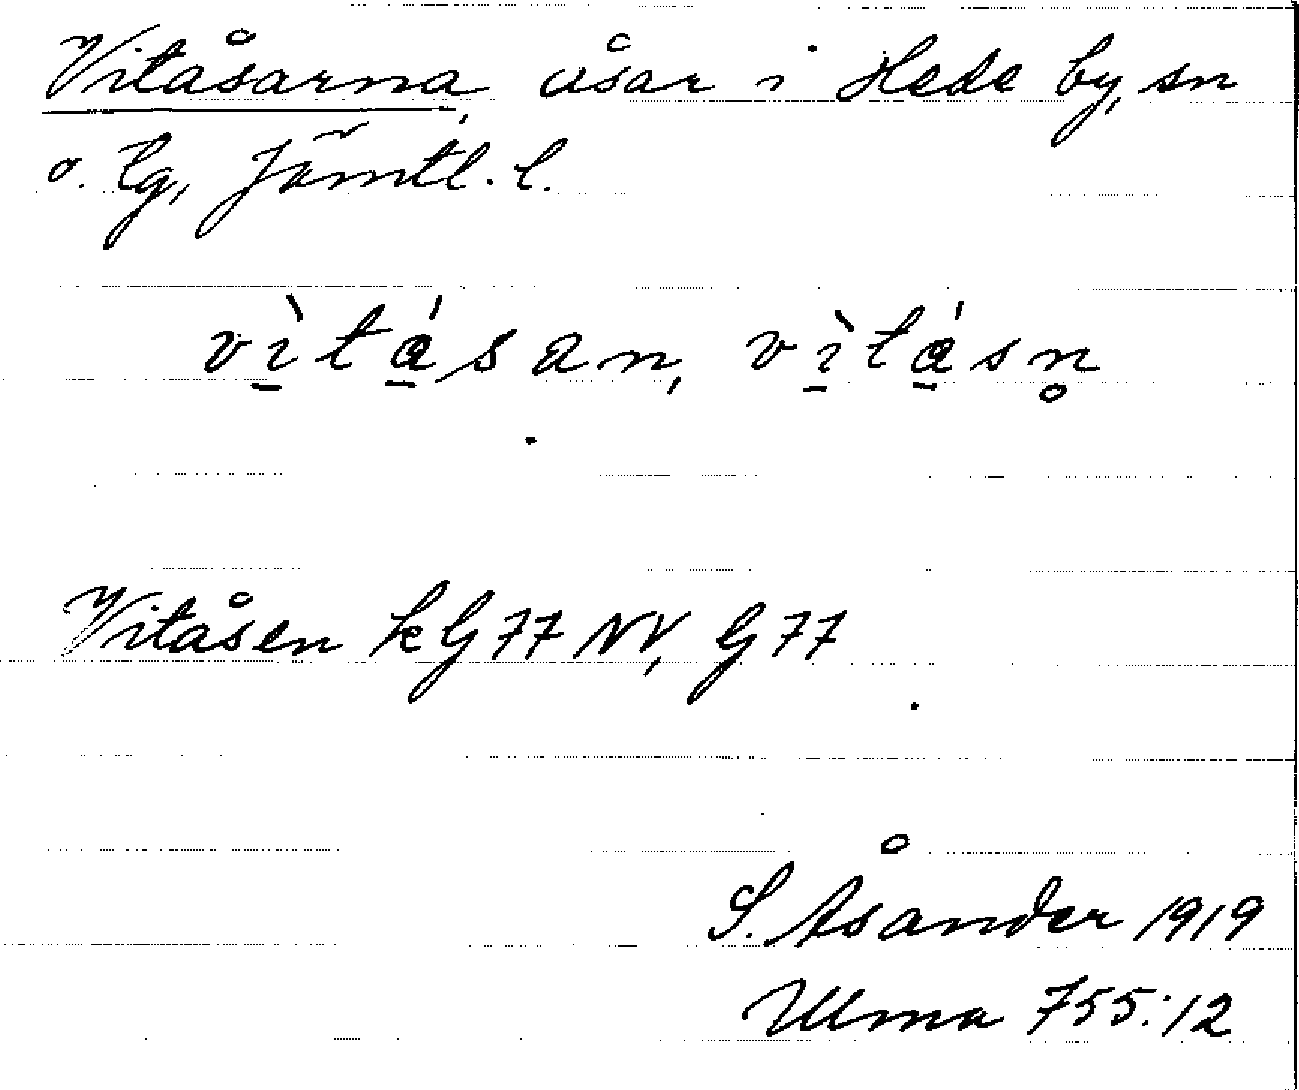 Vitåsarna, åsar i Hede by, sn
o. tg, Jämtl. l.
vı̱̀ta̱̍san, vı̱̀ta̱̍sn̥
Vitåsen kG77 NV, G77
S. Åsander 1919
Ulma 755:12